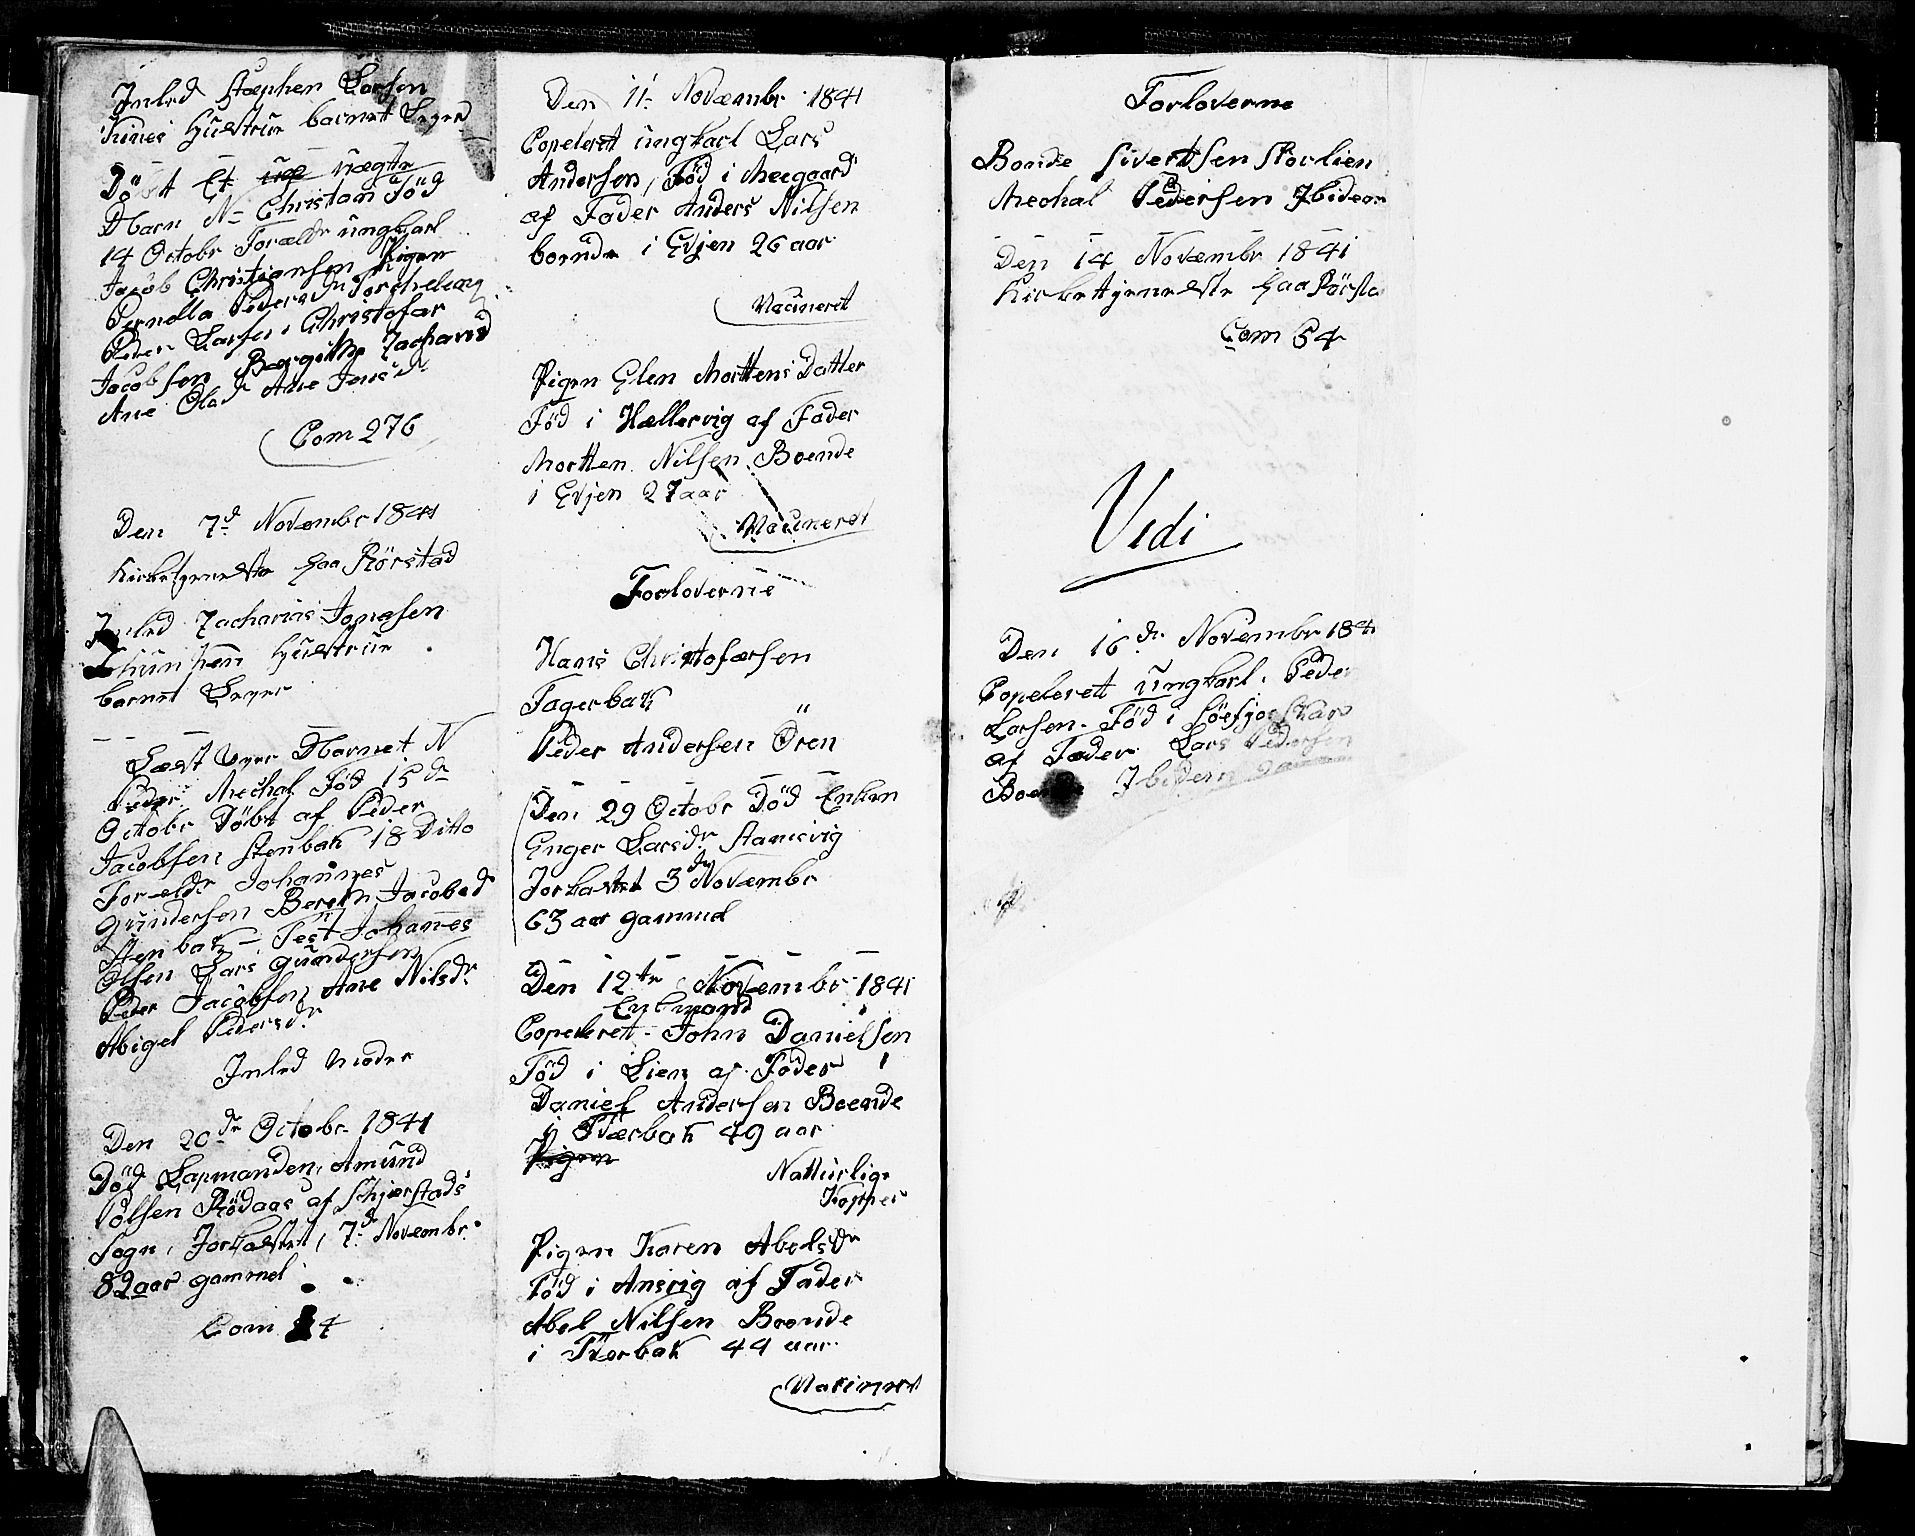 Inled Stephen Larsen
Kines Hustrue barnet Leved
Døbt Et uægte
Barn N= Christian Fød
14 Octobr Foræld ungkarl
Jacob Christiansen Pigen
Pernella Peders
Peder Larsen Christofar
Jacobsen Bergithe Zacharid
Ane Olad Ane Jens d.
Com 276
Den 7d Novembr 1841
Kirketjeneste paa Rørstad
Inled Zacharias Jonasen
hustrue
barnet Lever
Læst over Barnet N
Peder Mechal Fød 15 de
Octobr Døbt af Peder
Jacobsen Stenbak 18 Ditto
Foreldr Johannes
Gundersen Bereth Jacobsd
Stenbak - Test Johannes
Olsen Lars Gundersen
Peder Jacobsen Ane Nilsdr
Abigel Pedersdr
Inled Moder
Den 20de Octobr 1841
Død Lapmanden Amund
Polsen Rødaas af Schjerstads
Sogn, Jorkastet, 7d Novembr
82 aar gammel
Com 14
Den 11- Novæmbr 1841
Copeleret ungkarl Lars
Andersen, Fød i Meegaard
af Fader Anders Nilsen
boende i Evjen 26 aar
Vacineret
Pigen Elen Morttens Datter
Fød i Hællervig af Fader
Mortten Nilsen Boende
i Evjen 27 aar
Vacineret
Forloverne
Hans Christofærsen
Fagerbak
Peder Andersen Ören
Den 29 Octobr Død Enken
Enger Larsdr Stamsvig
Jorkastet 3de Novæmbr
63 aar gammel
Den 12te Novembr 1841
Enkmand
Copeleret - John Danielsen
Fød i Lien af Fader
Daniel Andersen Boende
i Tværbak 49 aar
Pigen
Natturlige
Kopper
Pigen Karen Abelsdr
Fød i Ansvig af Fader
Abel Nilsen Boende
i Tverbak 44 aar
Vacineret
Forloverne
Bonde Sivertsen Storlien
Mechal Pedersen Ibidem
Den 14 Novembr 1841
Kirketjeneste paa Rørsta
Com 54
Vidi
Den 16de Novembr 184
Copeleret ungkarl Peder
Larsen Fød i
af Fader Lars Pedersen
Boende Ibidem